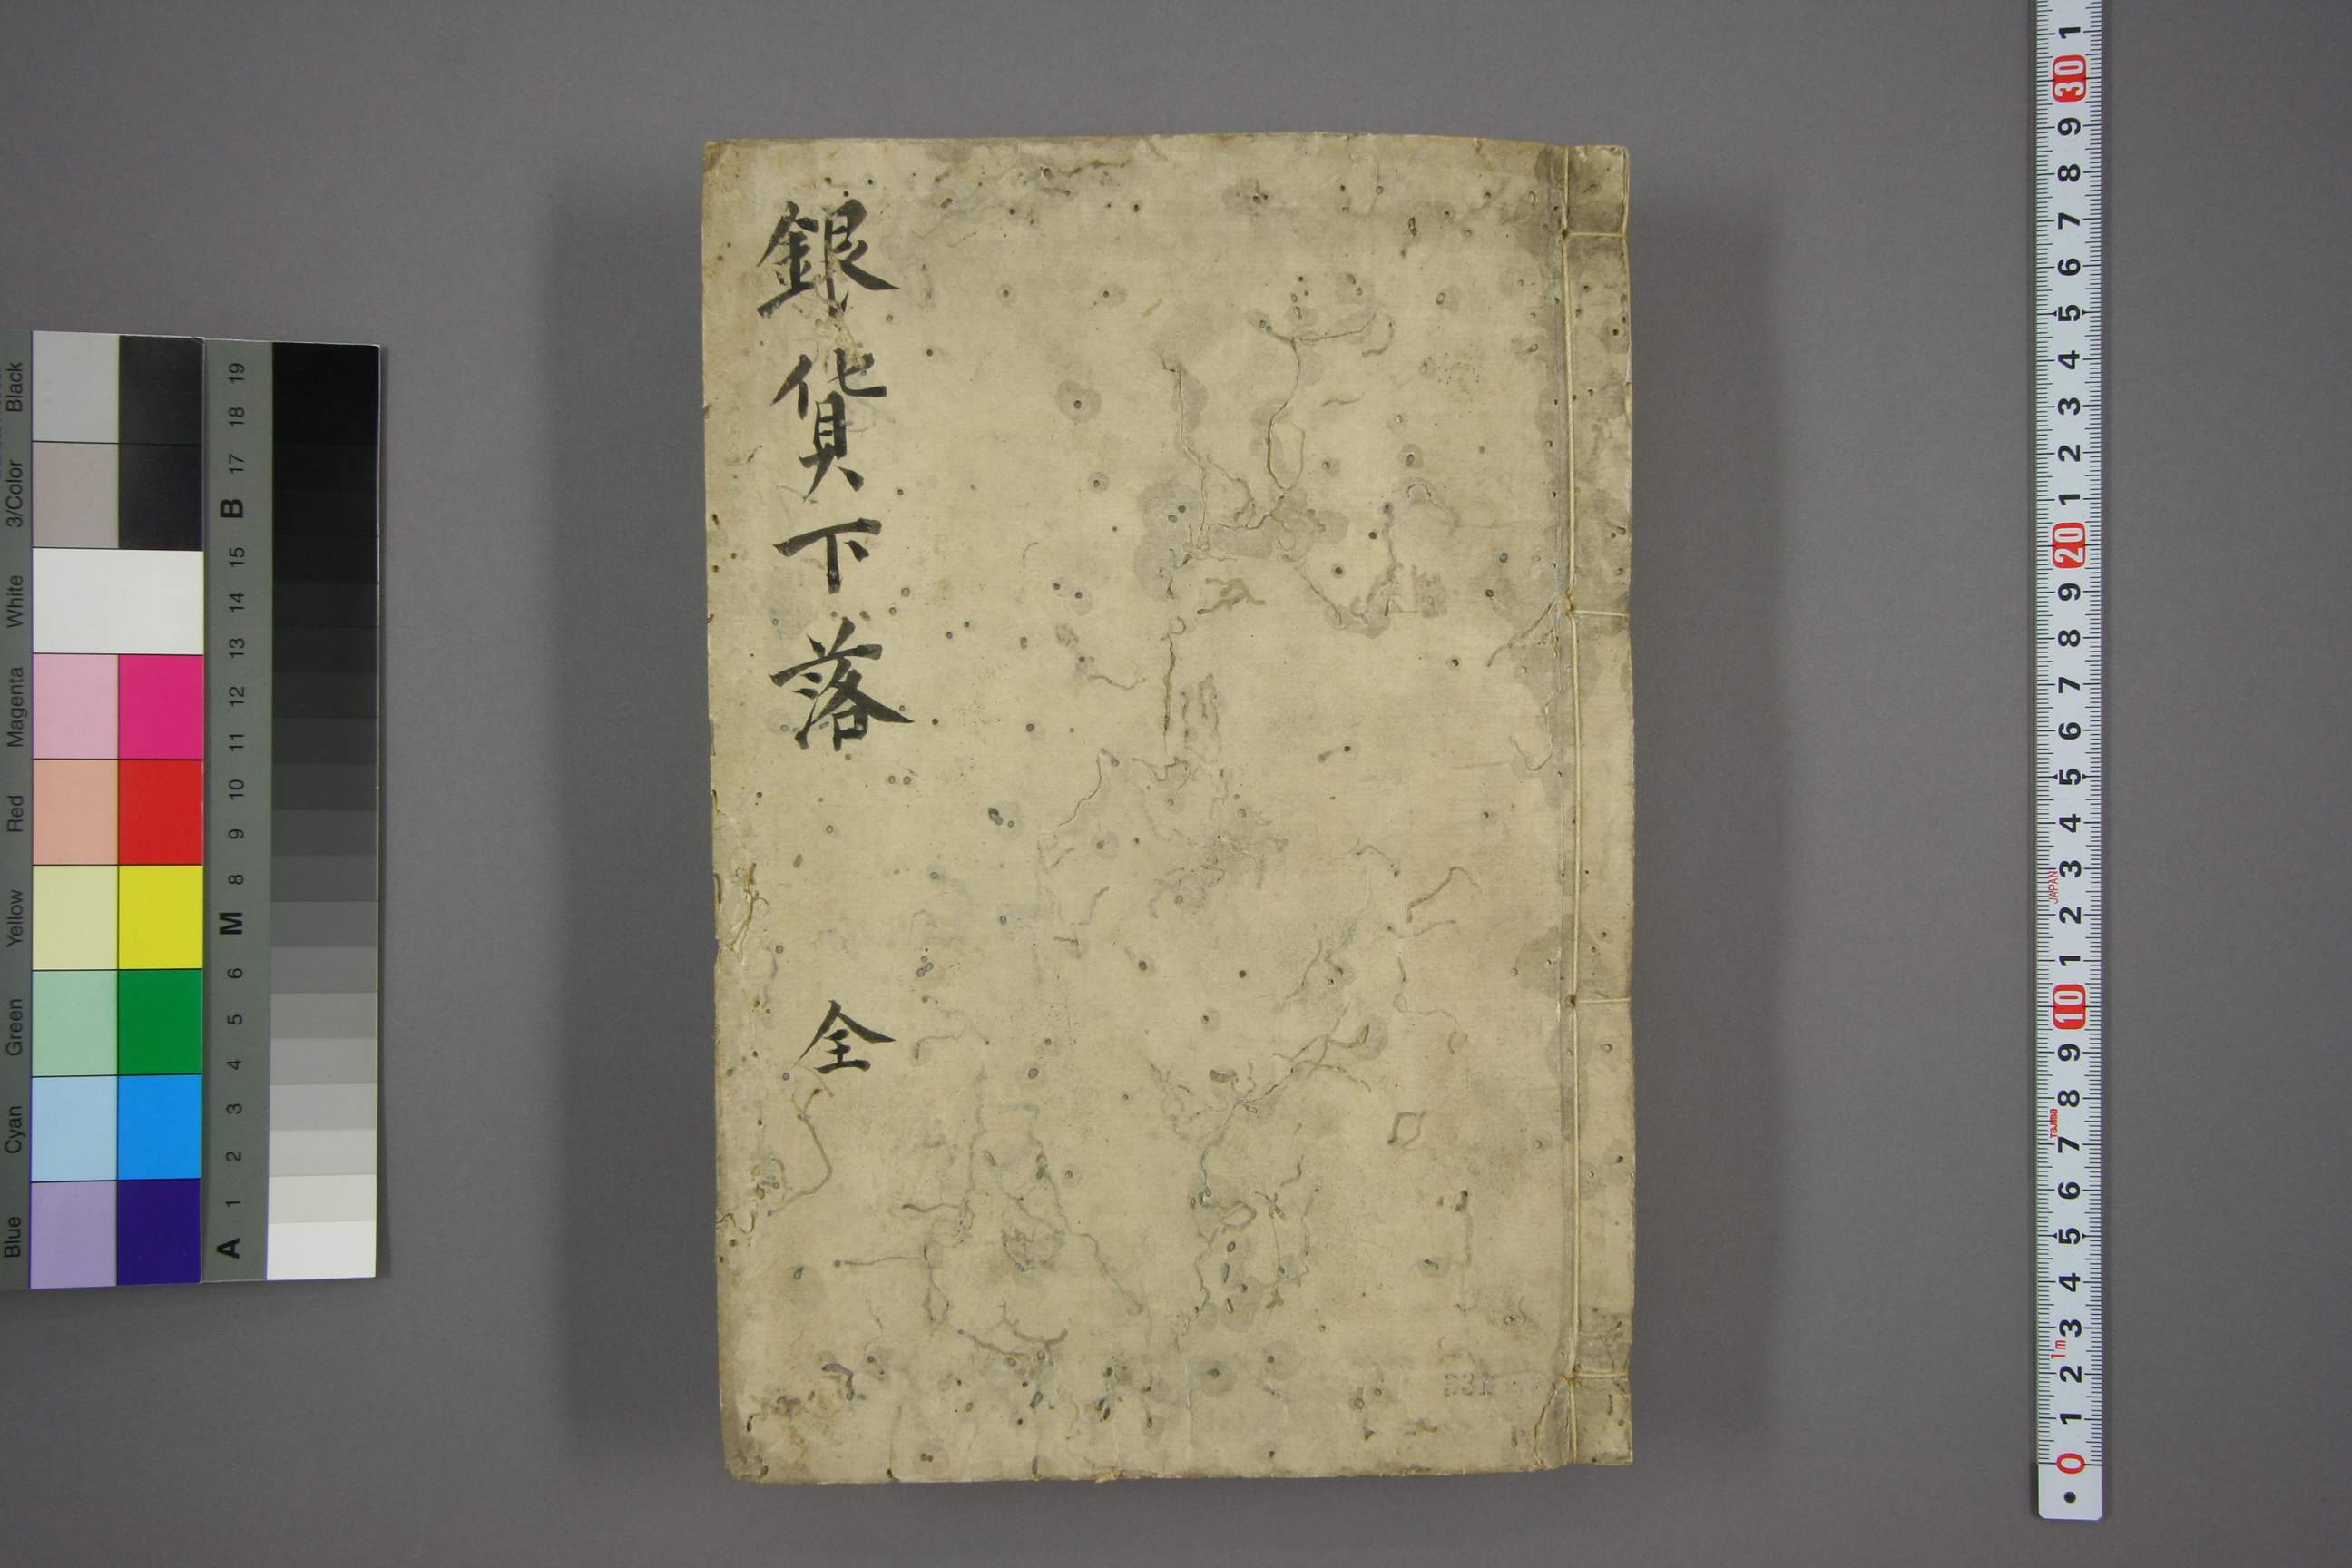 銀貨下落
全
Black
3/Color
White
Magenta
Red
Yellow
Green
Cyan
Blue
19
18
17
B
15
14
13
12
11
10
9
8
M
6
5
4
3
2
1
A
1
30
9
8
7
6
5
4
3
2
1
20
9
8
7
6
5
4
3
JAPAN
2
1
10
9
8
Tajima
7
6
5
4
3
1m
2
1
0